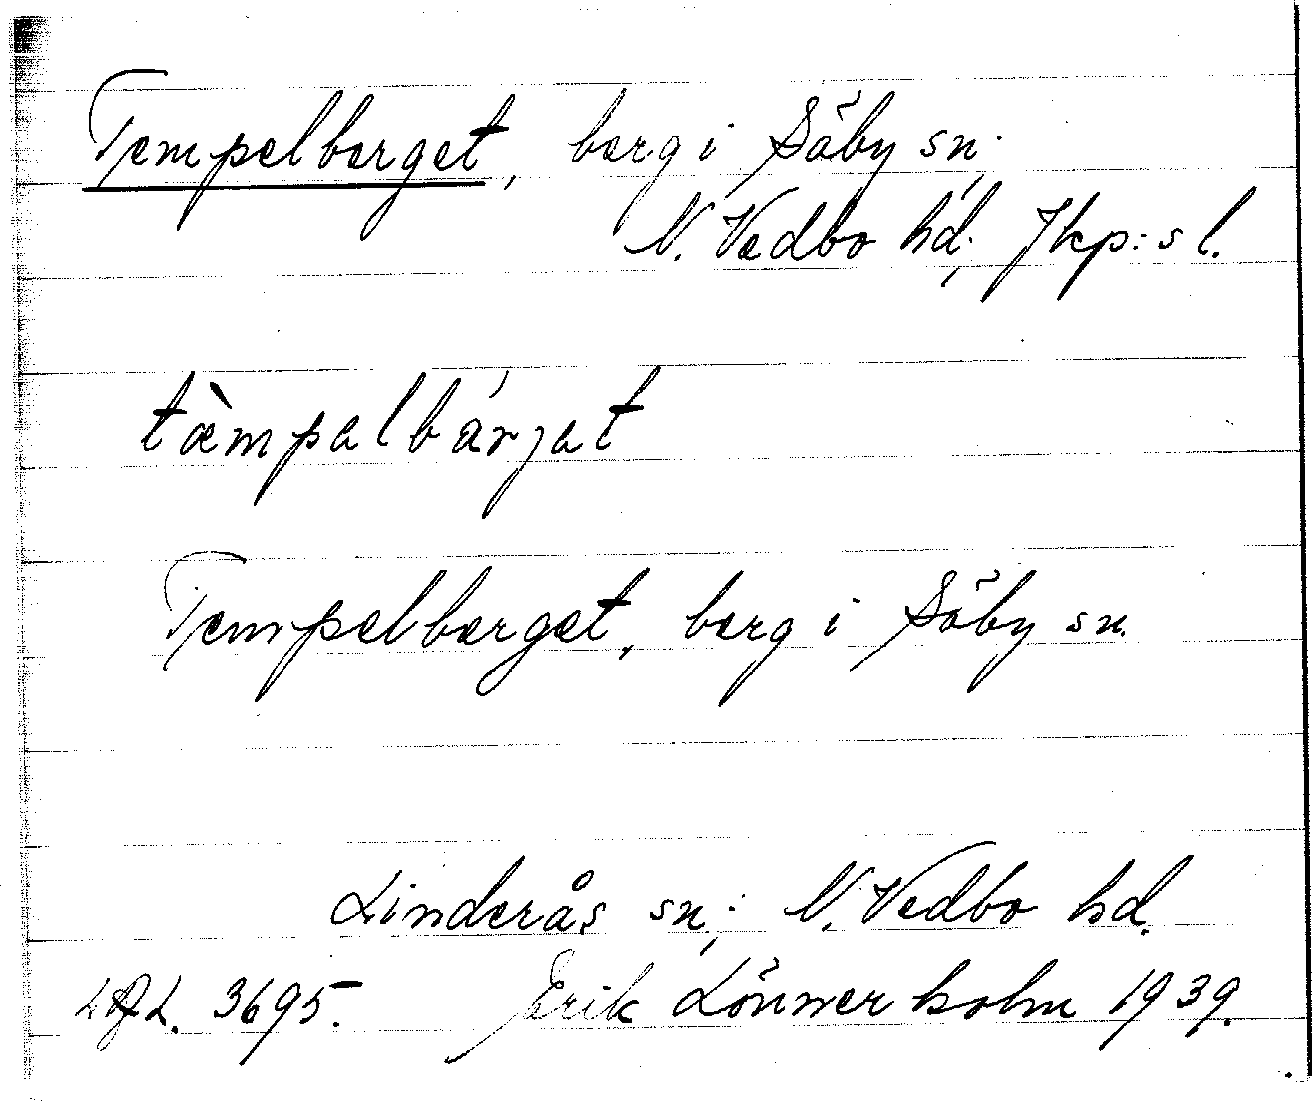 Tempelberget, berg i Säby sn;
N. Vedbo hd; Jkp:s l.
tæ̀mpəlbárjət
Tempelberget, berg i Säby sn.
Linderås sn; N. Vedbo hd.
3695. Erik Lönnerholm 1939.